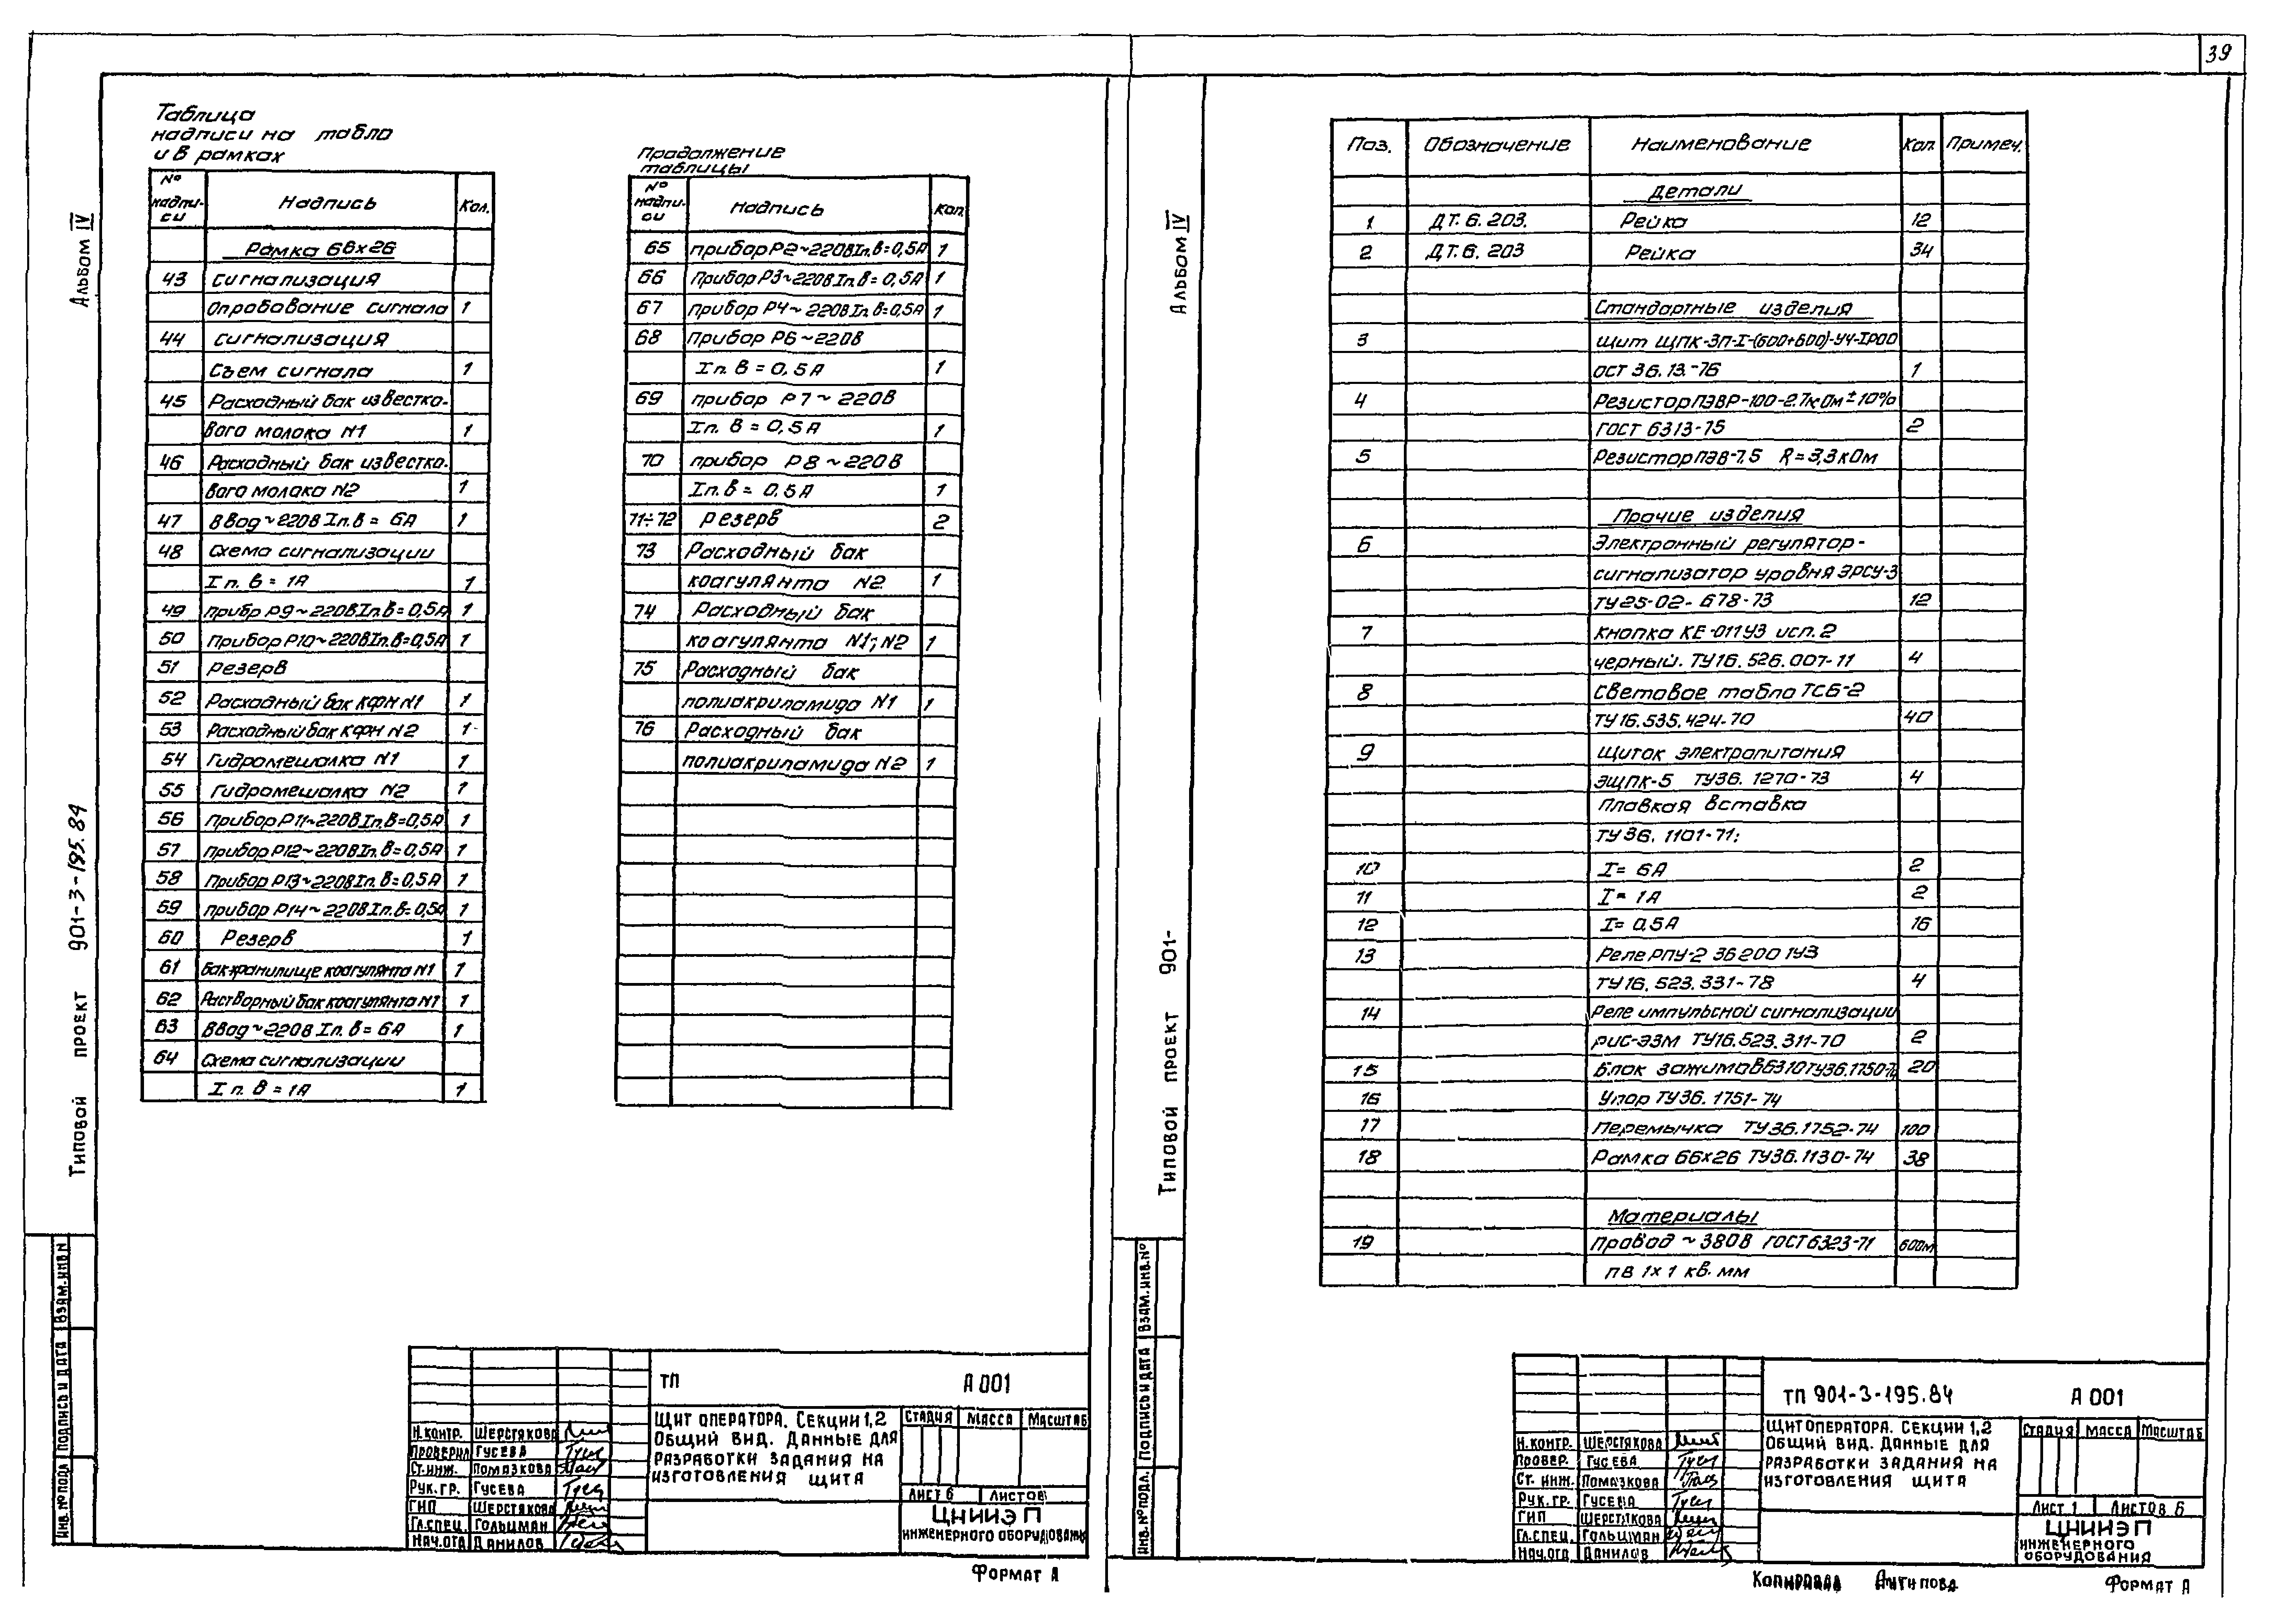 39
Альбом IV
Типовой проект 901-3-195.84
Таблица
надписи на табло
и в рамках
№ надписи Надпись Кол.
Рамка 66х26
43 Сигнализация
Опробование сигнала 1
44 Сигнализация
Съем сигнала 1
45 Расходный бак известко-
вого молока N1 1
46 Расходный бак известко-
вого молока N2 1
47 Ввод ~220В Iп.в = 6А 1
48 Схема сигнализации
Iп.в = 1А 1
49 Прибр Р9~220В Iп.в=0,5А 1
50 Прибор Р10~220В Iп.в=0,5А 1
51 Резерв
52 Расходный бак КФН N1 1
53 Расходный бак КФН N2 1
54 Гидромешалка N1 1
55 Гидромешалка N2 1
56 Прибор Р11~220В Iп.в=0,5А 1
57 Прибор Р12~220В Iп.в=0,5А 1
58 Прибор Р13~220В Iп.в=0,5А 1
59 Прибор Р14~220В Iп.в=0,5А 1
60 Резерв 1
61 Бак хранилище коагулянта N1 1
62 Растворный бак коагулянта N1 1
63 Ввод ~220В Iп.в = 6А 1
64 Схема сигнализации
Iп.в = 1А 1
Продолжение
таблицы
№ надписи Надпись Кол.
65 Прибор Р2~220В Iп.в=0,5А 1
66 Прибор Р3~220В Iп.в=0,5А 1
67 Прибор Р4~220В Iп.в=0,5А 1
68 Прибор Р6~220В
Iп.в = 0,5А 1
69 Прибор Р7~220В
Iп.в = 0,5А 1
70 Прибор Р8~220В
Iп.в = 0,5А 1
71÷72 Резерв 2
73 Расходный бак
коагулянта N2 1
74 Расходный бак
коагулянта N1; N2 1
75 Расходный бак
полиакриламида N1 1
76 Расходный бак
полиакриламида N2 1
Взам.инв N
Подпись и дата
Инв.№ подл
ТП А 001
Щит оператора. Секции 1,2
Общий вид. Данные для
разработки задания на
изготовления щита
Стадия Масса Масштаб
Лист 6 Листов
ЦНИИЭП
инженерного оборудования
Н.контр. Шерстякова
Проверил Гусева
Ст.инж. Помазкова
Рук.гр. Гусева
ГИП Шерстякова
Гл.спец. Гольцман
Нач.отд Данилов
Формат А
Альбом IV
Типовой проект 901-
Поз. Обозначение Наименование Кол. Примеч.
Детали
1 ДТ.6.203. Рейка 12
2 ДТ.6.203 Рейка 34
Стандартные изделия
3 Щит ЩПК-ЗП-I-(600+600)-УЧ-IP00
ОСТ 36.13.-76 1
4 Резистор ПЭВР-100-2.7кОм±10%
ГОСТ 6313-75 2
5 Резистор ПЭВ-7.5 R=3,3кОм
Прочие изделия
6 Электронный регулятор-
сигнализатор уровня ЭРСУ-3
ТУ25-02-678-73 12
7 Кнопка КЕ-011У3 исп.2
черный. ТУ16.526.007-11 4
8 Световое табло ТСБ-2
ТУ16.535.424-70 40
9 Щиток электропитания
ЭЩПК-5 ТУ36.1270-73 4
Плавкая вставка
ТУ36.1101-71:
10 I= 6А 2
11 I= 1А 2
12 I= 0,5А 16
13 Реле РПУ-2 36200 1У3
ТУ16.523.331-78 4
14 Реле импульсной сигнализации
РИС-Э3М ТУ16.523.311-70 2
15 Блок зажимов Б310 ТУ36.1750-74 20
16 Упор ТУ36.1751-74
17 Перемычка ТУ36.1752-74 100
18 Рамка 66х26 ТУ36.1130-74 38
Материалы
19 Провод ~380В ГОСТ6323-71 600м
ПВ 1х1 кв.мм
Взам.инв.№
Подпись и дата
Инв.№ подл.
ТП 901-3-195.84 А 001
Щит оператора. Секции 1,2
Общий вид. Данные для
разработки задания на
изготовления щита
Стадия Масса Масштаб
Лист 1 Листов 6
ЦНИИЭП
инженерного
оборудования
Н.контр. Шерстякова
Провер. Гусева
Ст. инж. Помазкова
Рук.гр. Гусева
ГИП Шерстякова
Гл.спец. Гольцман
Нач.отд Данилов
Копировал Антипова Формат А